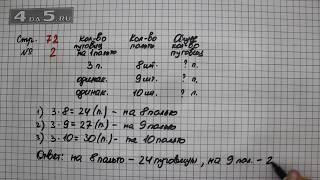 4DA5.RU
Стр. 72
№ 2
Кол-во пуговиц на 1 пальто
Кол-во пальто
Общее кол-во пуговиц
3 п. 8 шт. ? п.
одинак. 9 шт. ? п.
одинак. 10 шт. ? п.
1) 3·8=24 (п.) - на 8 пальто
2) 3·9=27 (п.) - на 9 пальто
3) 3·10=30 (п.) - 10 пальто
Ответ: на 8 пальто - 24 пуговицы, на 9 пал. - 2